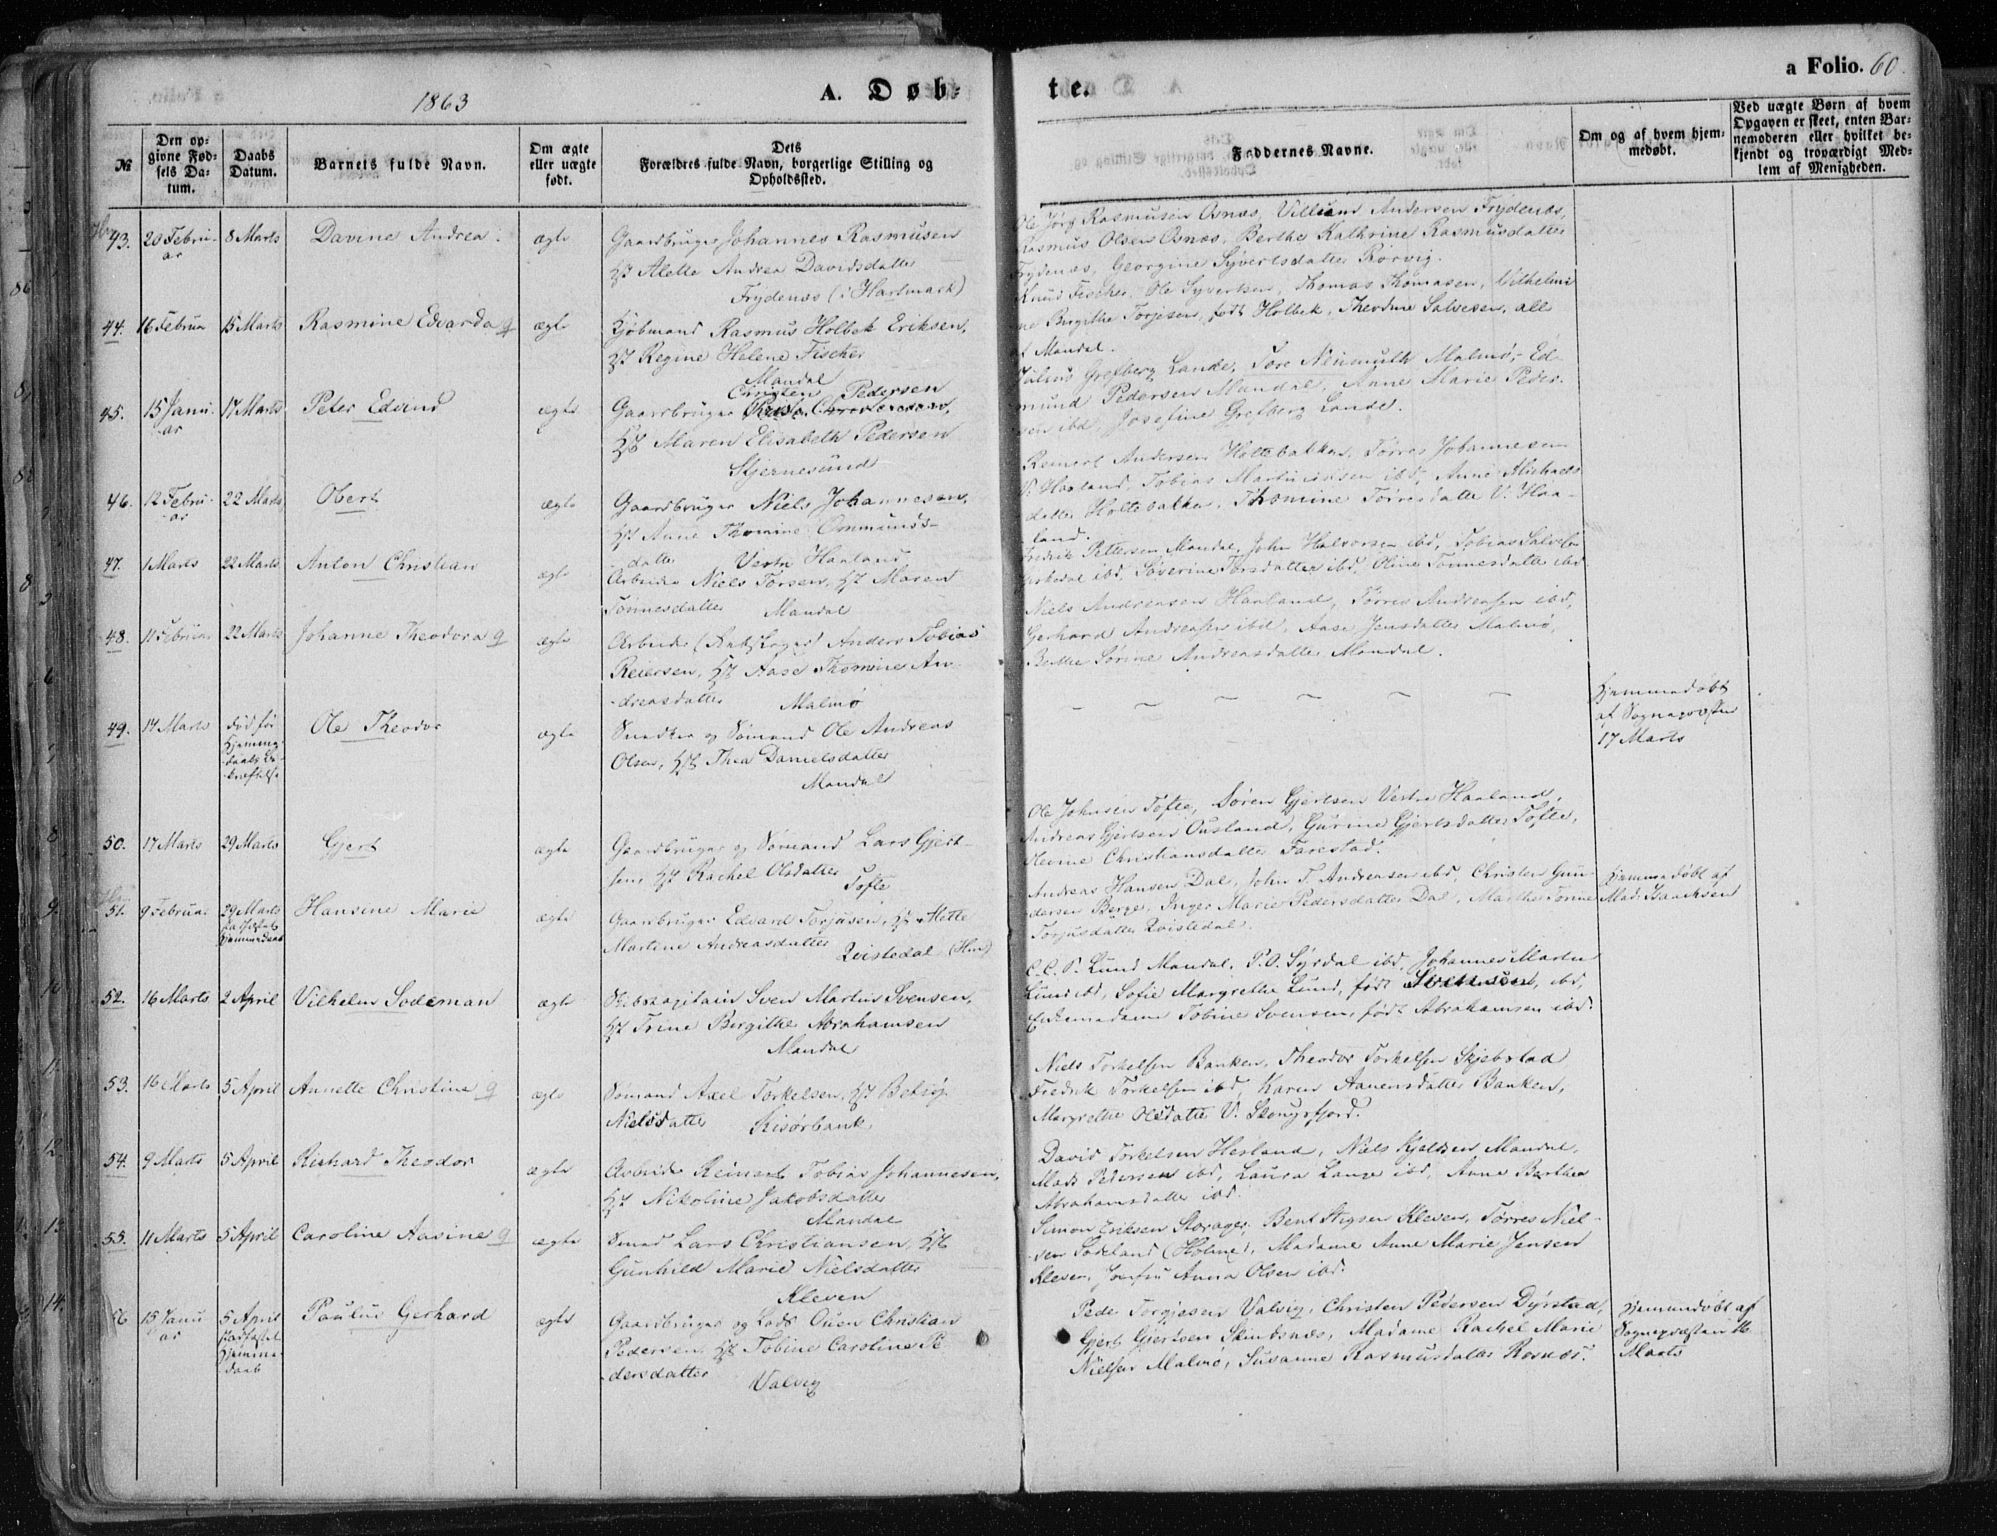 1863
A. Døb-
te.
a Folio. 60.
№
Den op-
givne Fød-
sels Da-
tum.
Daabs
Datum.
Barnets fulde Navn.
Om ægte
eller uægte
født.
Dets
Forældres fulde Navn, borgerlige Stilling og
Opholdssted.
Faddernes Navne.
Om og af hvem hjem-
medøbt.
Ved uægte Børn af hvem
Opgaven er skeet, enten Bar-
nemoderen eller hvilket be-
kjendt og troværdigt Med-
lem af Menigheden.
43. 20 Febru-
ar
8 Marts
Davine Andrea
ægte
Gaardbruger Johannes Rasmusen
Hst Alette Andrea Davidsdatter
Frydenæs (i Hartmark)
Ole Jørg Rasmusen Osnæs, Villum Andersen Frydenæs,
Rasmus Olsen Osnæs, Berthe Kathrine Rasmusdatter
Frydenæs, Georgine Syvertsdatter Rørvig.
44. 16 Februa
15 Marts
Rasmine Edvarda
ægte
Kjøbmand Rasmus Holbek Eriksen,
Hst Regine Helene Fischer
Mandal
Knud Fischer, Ole Syvertsen, Thomas Thomasen, Vilhelmi-
ne Birgithe Torjesen, født Holbek, Theodine Salvesen, alle
af Mandal.
45. 15 Janu-
ar
17 Marts
Peter Edvind
ægte
Christen Pedersen
Gaardbruger
Hst Maren Elisabeth Pedersen
Skjernesund
Julius Grefberg Lande, Tore Neumuth Malmø, Ed-
mund Pedersen Mandal, Anne Marie Peder-
sen ibd, Josefine Grefberg Lande.
46. 12 Febru-
ar
22 Marts
Obert
ægte
Gaardbruger Niels Johannesen,
Hst Anne Thomine Ommunds-
datter Vestre Haaland
Reinert Andersen Holtebakken, Tørres Johannesen
V. Haaland, Tobias Martiniusen ibd, Anne Michaels-
datter Holtebakken, Thomine Tørresdatter V. Haa-
land.
47. 1 Marts
22 Marts
Anton Christian
ægte
Arbeider Niels Torsen, Hst Maren
Tønnesdatter Mandal
Fredrik Pettersen Mandal, John Halvorsen ibd, Tobias Salvesen
ibd, Severine Torsdatter ibd, Oline Tønnesdatter ibd
48. 11 Februar
22 Marts
Johanne Theodora
ægte
Arbeider Anders Tobias
Reiersen, Hst Aase Thomine An-
dreasdatter Malmø
Niels Andreasen Haaland, Tørres Andreasen ibd,
Gerhard Andreasen ibd, Aase Jensdatter Malmø,
Berthe Sørine Andreasdatter Mandal.
49. 14 Marts
død før
Hjemme-
daabs Be-
kræftelse
Ole Theodor
ægte
Snedker og Sømand Ole Andreas
Olsen, Hst Thea Danielsdatter
Mandal
Hjemmedøbt
af Sognepræsten
17 Marts
50. 17 Marts
29 Marts
Gjert
ægte
Gaardbruger og Sømand Lars Gjert-
sen, Hst Rachel Olsdatter
Tofte
Ole Johnsen Tofte, Søren Gjertsen Vestre Haaland,
Andreas Gjertsen Ousland, Gurine Gjertsdatter Tofte,
Olevine Christiansdatter Farestad.
51. 9 Februar
29 Marts
Hansine Marie
ægte
Gaardbruger Edvard Torjusen, Hst Mette
Martine Andreasdatter
Qvistedal (Hm)
Andreas Hansen Dal, John T. Andreasen ibd, Christen Gun-
dersen Berge, Inger Marie Pedersdatter Dal, Marthe Tonine
Torjusdatter Qvistedal.
Hjemmedøbt af
Mad. Isaachsen
52. 16 Marts
2 April
Vilhelm Sodeman
ægte
Skibscapitain Sven Martin Svensen,
Hst Trine Birgithe Abrahamsen
Mandal
C. C. P. Lund Mandal, P. O. Syrdal ibd, Johannes Martin
Lund ibd, Sofie Margrethe Lund, født, ibd,
Enkemadame Tobine Svensen, født Abrahamsen ibd.
53. 16 Marts
5 April
Annette Christine
ægte
Sømand Axel Torkelsen, Hst Betsy
Nielsdatter Risørbank
Niels Torkelsen Banken, Theodor Torkelsen Skjebstad
Fredrik Torkelsen ibd, Karen Aanensdatter Banken,
Margrethe Olsdatter V. Skougsfjord.
54. 9 Marts
5 April
Richard Theodor
ægte
Arbeider Reinert Tobias Johannesen,
Hst Nikoline Jakobsdatter
Mandal
David Torkelsen Hesland, Niels Kjeldsen Mandal,
Mads Pedersen ibd, Laura Lange ibd, Anne Berthea
Abrahamsdatter ibd.
55. 11 Marts
5 April
Caroline Aasine
ægte
Smed Lars Christiansen, Hst
Gunhild Marie Nielsdatter
Kleven
Simon Eriksen Storager, Bent Stigsen Kleven, Tørres Niel-
sen Sødeland (Holme), Madame Anne Marie Jensen
Kleven, Jomfru Anna Olsen ibd.
56 15 Janu
ar
5 April
stadfæstet
Hjemme-
daab
Paulus Gerhard
ægte
Gaardbruger og Lods Ouen Christian
Pedersen, Hst Tobine Caroline Pe-
dersdatter
Valvig
Peder Torgjesen Valvig, Christen Pedersen Dyrstad,
Gjert Gjertsen Skindsnæs, Madame Rachel Marie
Nielsen Malmø, Susanne Rasmusdatter Rosnæs.
Hjemmedøbt af
Sognepræsten 16
Marts